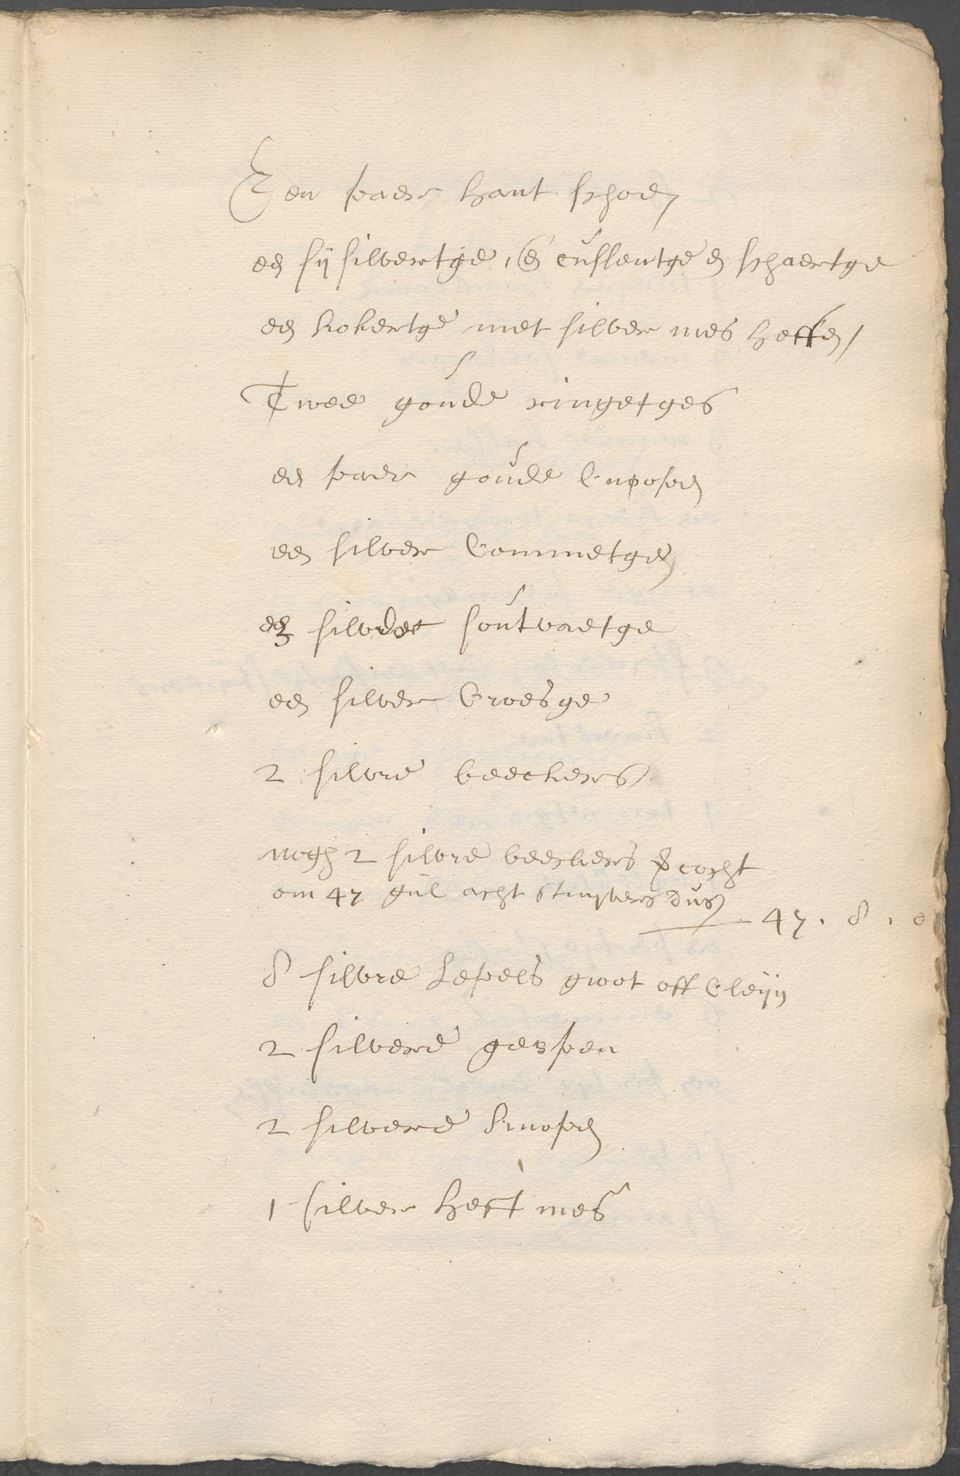 Een paer hant schoen
een sij silvertge, en cussentge en schaertge
een kokertge met silver mes heften
Twee goude ringetges
een paer goude cnopen
een silver Commetgen
een silver soutvaetge
een silver Croesge
2 silvre beeckers
nogh 2 silvre beeckers vercocht
om 47 gul acht stuyvers dus
47 . 8 . 0
8 silvre Lepels groot off Cleijn
2 silvere gespen
2 silvere knopen
1 silver heft mes